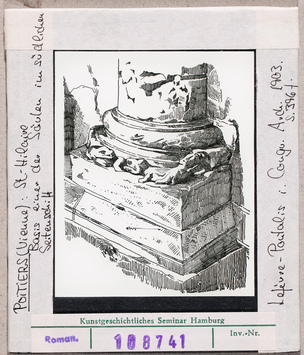 POITIERS (Vienne): St-Hilaire
Basis einer der Säulen im südlichen
Seitenschiff
Lefèvre-Pontalis i. Congr. Arch. 1903.
S. 396 f.
Kunstgeschichtliches Seminar Hamburg
Roman. 108741 Inv.-Nr.